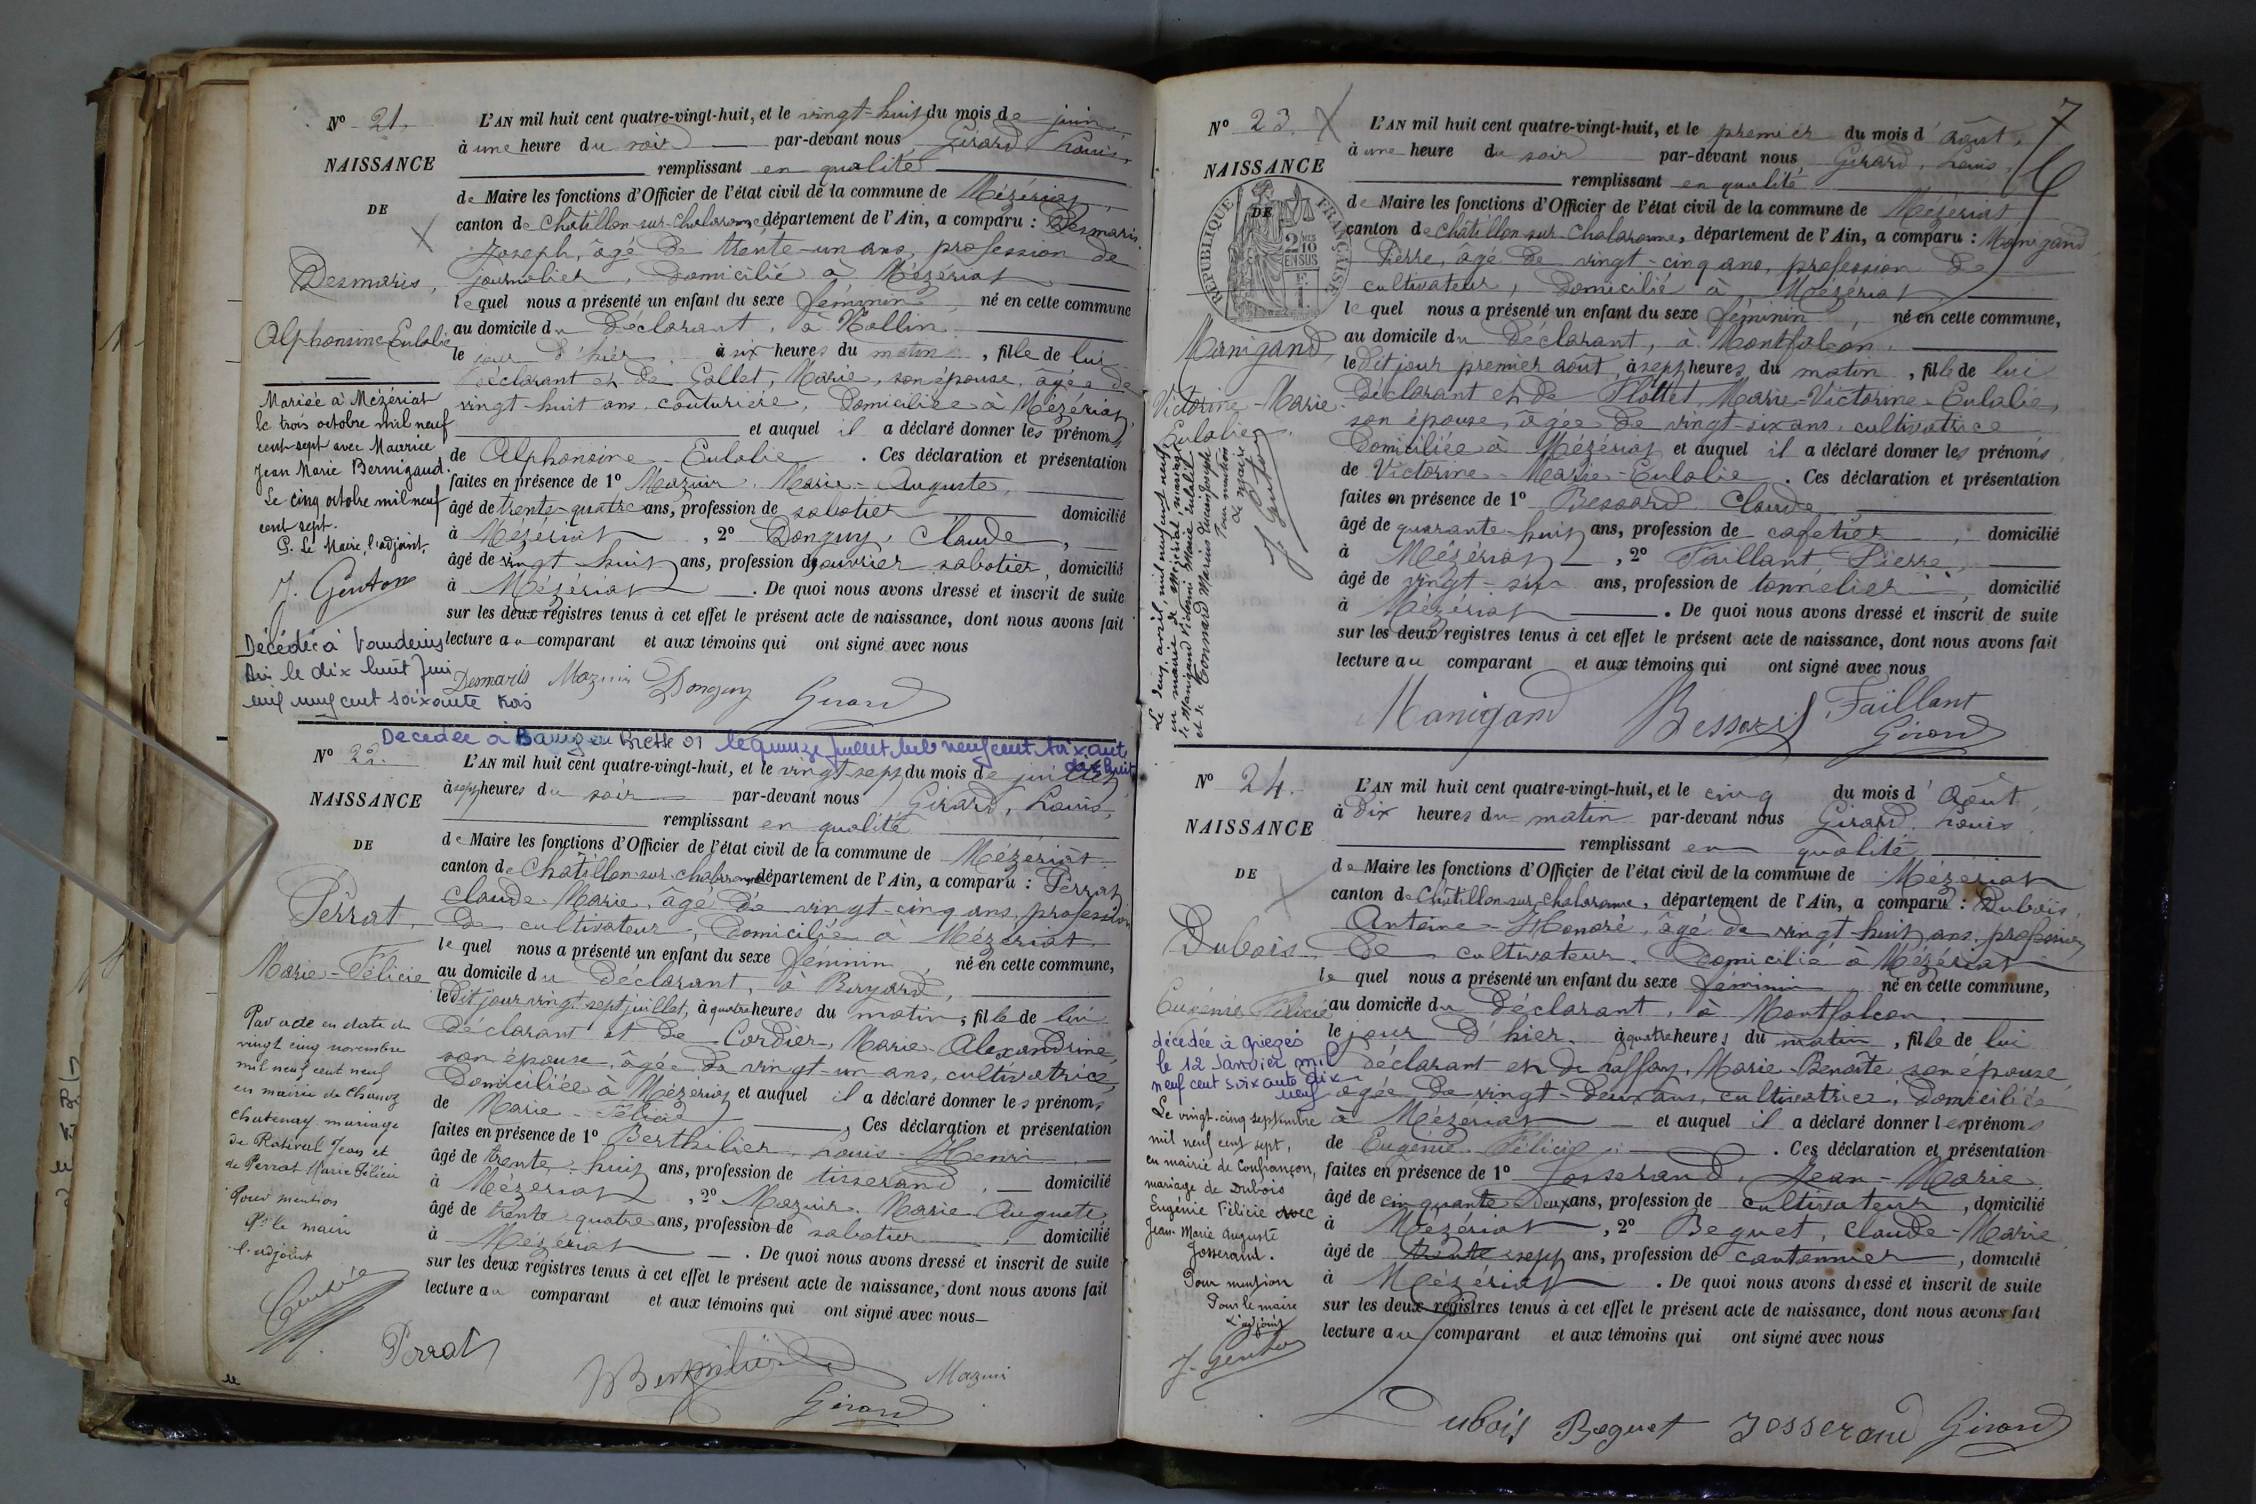 Nº 21.
NAISSANCE
DE
Desmaris,
Alphonsine Eulalie
Mariée à Mézériat
le trois octobre mil neuf
cent sept avec Maurice
Jean Marie Bernigaud.
Le cinq octobre mil neuf
cent sept.
P. Le Maire, l'adjoint,
J. Genton
Décédée à
le dix huit Juin
mil neuf cent soixante trois
L'AN mil huit cent quatre-vingt-huit, et le vingt-huit du mois de juin,
à une heure du soir par-devant nous Girard, Louis,
remplissant en qualité
de Maire les fonctions d'Officier de l'état civil de la commune de Mézériat,
canton de Châtillon-sur-Chalaronne, département de l'Ain, a comparu : Desmaris
Joseph, âgé de trente-un ans, profession de
journalier, domicilié à Mézériat
lequel nous a présenté un enfant du sexe féminin, né en cette commune
au domicile du déclarant, à
le jour d'hier, à six heures du matin, fille de lui
déclarant et de Gallet, Marie, son épouse, âgée de
vingt-huit ans, couturière, domiciliée à Mézériat
et auquel il a déclaré donner les prénoms
de Alphonsine Eulalie. Ces déclaration et présentation
faites en présence de 1º Mazuir, Marie-Auguste,
âgé de trente-quatre ans, profession de sabotier domicilié
à Mézériat, 2º Donguy, Claude,
âgé de vingt huit ans, profession d'ouvrier sabotier, domicilié
à Mézériat. De quoi nous avons dressé et inscrit de suite
sur les deux registres tenus à cet effet le présent acte de naissance, dont nous avons fait
lecture au comparant et aux témoins qui ont signé avec nous
Desmaris Mazuir Donguy Girard
Décédée à Baugé en Bresse 01 le quinze juillet mil neuf cent soixante
dix huit
Nº 22.
NAISSANCE
DE
Perrat,
Marie-Félicie
Par acte en date du
vingt cinq novembre
mil neuf cent neuf
en mairie de Chanoz
Chatenay mariage
de Rativel Jean et
de Perrat Marie Félicie
Pour mention
Pr le maire
l'adjoint
L'AN mil huit cent quatre-vingt-huit, et le vingt-sept du mois de juillet
à sept heures du soir par-devant nous Girard, Louis,
remplissant en qualité
de Maire les fonctions d'Officier de l'état civil de la commune de Mézériat
canton de Châtillon-sur-Chalaronne, département de l'Ain, a comparu : Perrat
Claude-Marie, âgé de vingt-cinq ans, profession
de cultivateur, domicilié à Mézériat
le quel nous a présenté un enfant du sexe féminin, né en cette commune,
au domicile du déclarant, à
ledit jour vingt-sept juillet, à quatre heures du matin, fille de lui
déclarant et de Cordier, Marie-Alexandrine,
son épouse, âgée de vingt-un ans, cultivatrice,
domiciliée à Mézériat et auquel il a déclaré donner les prénoms
de Marie-Félicie. Ces déclaration et présentation
faites en présence de 1º Berthilier, Louis-Henri
âgé de trente-huit ans, profession de tisserand, domicilié
à Mézériat, 2º Mazuir, Marie-Auguste
âgé de trente quatre ans, profession de sabotier, domicilié
à Mézériat. De quoi nous avons dressé et inscrit de suite
sur les deux registres tenus à cet effet le présent acte de naissance, dont nous avons fait
lecture au comparant et aux témoins qui ont signé avec nous
Perrat Berthilier Mazuir
Girard
7
Nº 23.
NAISSANCE
DE
RÉPUBLIQUE FRANÇAISE
Manigand,
Victorine-Marie
Eulalie
Le deux avril mil neuf cent neuf
en mairie de Mézériat, mariage
de Manigand Victorine Marie Eulalie
et de
Pour mention
Le maire
J. Genton
L'AN mil huit cent quatre-vingt-huit, et le premier du mois d'Août,
à une heure du soir par-devant nous Girard, Louis,
remplissant en qualité
de Maire les fonctions d'Officier de l'état civil de la commune de Mézériat
canton de Châtillon-sur-Chalaronne, département de l'Ain, a comparu : Manigand
Pierre, âgé de vingt-cinq ans, profession de
cultivateur, domicilié à Mézériat
le quel nous a présenté un enfant du sexe féminin, né en cette commune,
au domicile du déclarant, à Montfalcon,
ledit jour premier août, à sept heures du matin, fille de lui
déclarant et de Flottet, Marie-Victorine-Eulalie,
son épouse, âgée de vingt-six ans, cultivatrice
domiciliée à Mézériat et auquel il a déclaré donner les prénoms
de Victorine-Marie Eulalie. Ces déclaration et présentation
faites en présence de 1º Bessard Claude
âgé de quarante-huit ans, profession de cafetier, domicilié
à Mézériat, 2º Faillant, Pierre,
âgé de vingt-six ans, profession de tonnelier, domicilié
à Mézériat. De quoi nous avons dressé et inscrit de suite
sur les deux registres tenus à cet effet le présent acte de naissance, dont nous avons fait
lecture au comparant et aux témoins qui ont signé avec nous
Manigand Bessard Faillant
Girard
Nº 24.
NAISSANCE
DE
Dubois.
Eugénie Félicie
décédée à Grièges
le 12 Janvier mil
neuf cent soixante dix
neuf
Le vingt-cinq septembre
mil neuf cent sept,
en mairie de Confrançon,
mariage de Dubois
Eugénie Félicie avec
Jean-Marie Auguste
Josserand.
Pour mention
Pour le maire
L'adjoint
J. Genton
L'AN mil huit cent quatre-vingt-huit, et le cinq du mois d'Août,
à dix heures du matin par-devant nous Girard, Louis,
remplissant en qualité
de Maire les fonctions d'Officier de l'état civil de la commune de Mézériat
canton de Châtillon-sur-Chalaronne, département de l'Ain, a comparu : Dubois,
Antoine-Honoré, âgé de vingt-huit ans, profession
de cultivateur, domicilié à Mézériat
le quel nous a présenté un enfant du sexe féminin né en cette commune,
au domicile du déclarant, à Montfalcon,
le jour d'hier, à quatre heures du matin, fille de lui
déclarant et de Laffay, Marie-Benoîte son épouse
âgée de vingt-deux ans, cultivatrice, domiciliée
à Mézériat et auquel il a déclaré donner les prénoms
de Eugénie-Félicie. Ces déclaration et présentation
faites en présence de 1º Josserand, Jean-Marie
âgé de cinquante deux ans, profession de cultivateur, domicilié
à Mézériat, 2º Beguet, Claude-Marie
âgé de trente sept ans, profession de cantonnier, domicilié
à Mézériat. De quoi nous avons dressé et inscrit de suite
sur les deux registres tenus à cet effet le présent acte de naissance, dont nous avons fait
lecture au comparant et aux témoins qui ont signé avec nous
Dubois Beguet Josserand Girard